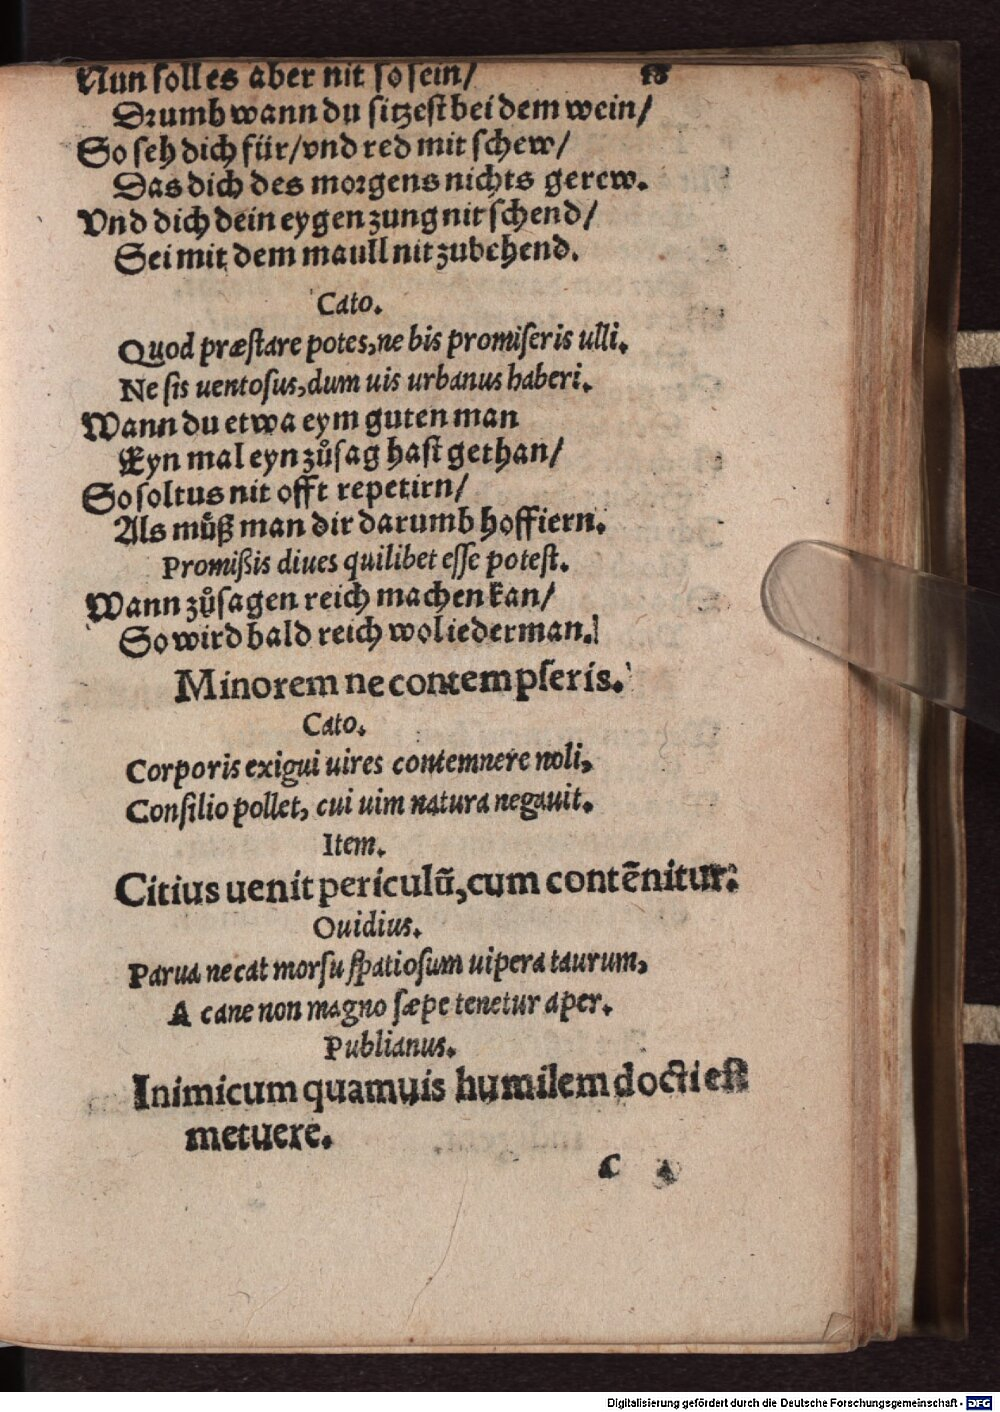 Nun soll es aber nit so sein/ 18
Drumb wann du sitzest bei dem wein/
So seh dich für/vnd red mit schew/
Das dich des morgens nichts gerew.
Vnd dich dein eygen zung nit schend/
Sei mit dem maull nit zu behend.
Cato.
Quod præſtare potes, ne bis promiſeris ulli.
Ne ſis uentoſus, dum uis urbanus haberi.
Wann du etwa eym guten man
Eyn mal eyn zůſag haſt gethan/
So soltus nit offt repetirn/
Als můß man dir darumb hoffiern.
Promißis diues quilibet eſſe poteſt.
Wann zůſagen reich machen kan/
So wird bald reich wol iederman.
Minorem ne contempſeris.
Cato.
Corporis exigui uires contemnere noli,
Conſilio pollet, cui uim natura negauit.
Item.
Citius uenit periculū, cum contēnitur.
Ouidius.
Parua necat morſu ſpatioſum uipera taurum,
A cane non magno ſæpe tenetur aper.
Publianus.
Inimicum quamuis humilem docti eſt
metuere.
C
Digitalisierung gefördert durch die Deutsche Forschungsgemeinschaft - DFG